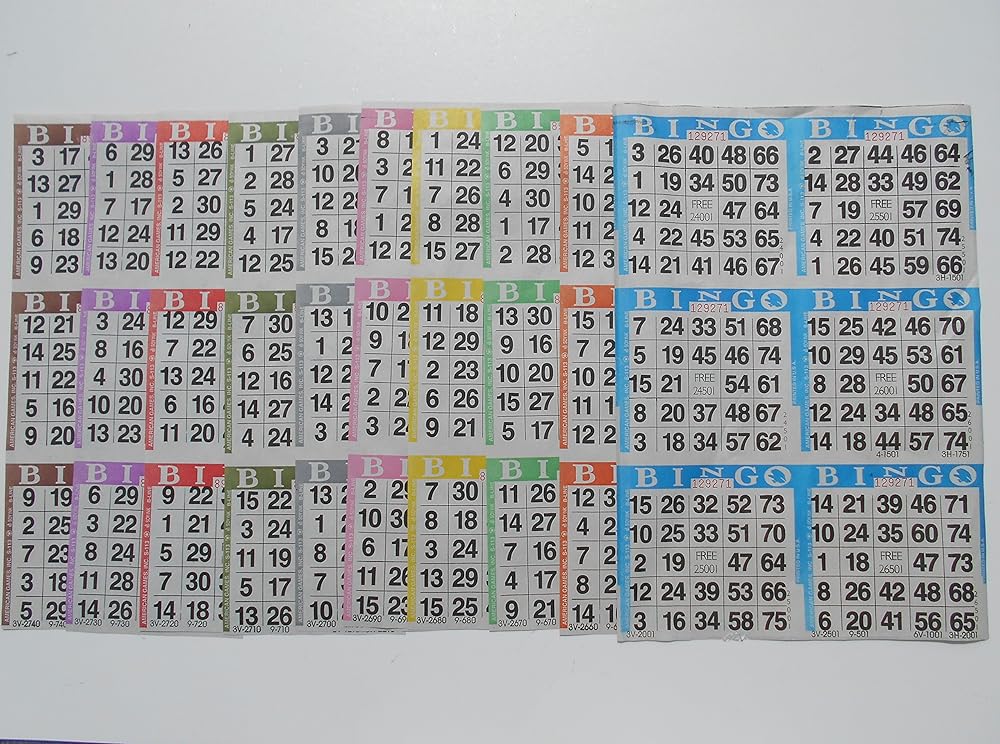 B I
3 17
13 27
1 29
6 18
9 23
B I
12 21
14 25
11 22
5 16
9 20
B I
9 19
2 25
7 23
3 18
5 29
3V-2740 9-740
AMERICAN GAMES, INC. S-113
B I
6 29
1 28
7 17
12 24
13 20
B I
3 24
8 16
4 30
10 20
13 23
B I
6 29
3 22
8 24
11 28
14 26
3V-2730 9-730
AMERICAN GAMES, INC. S-113
B I
13 26
5 27
2 30
11 29
12 22
B I
12 29
7 22
13 24
6 16
11 20
B I
9 22
1 21
5 29
7 30
14 18
3V-2720 9-720
AMERICAN GAMES, INC. S-113
B I
1 27
2 28
5 24
4 17
12 25
B I
7 30
6 25
12 16
14 27
4 24
B I
15 22
3 24
11 19
5 17
13 26
3V-2710 9-710
AMERICAN GAMES, INC. S-113
B I
3
10
12
8
15
B I
13
1
7
10
3
B
13
1
8
7
10
3V-2700
B I
8
3
7
1
12
B I
10
9
7
2
3
B I
2
10
6
1
15
3V-2690
B I
1 24
11 22
7 26
1 28
13 27
B I
11 28
12 29
2 23
6 26
9 21
B I
7 30
8 18
3 24
13 29
15 25
3V-2680 9-680
B I
12 20
6 29
4 30
1 17
2 28
B I
13 30
9 16
10 20
15 27
5 17
B I
11 26
14 27
7 16
4 17
9 21
3V-2670 9-670
B
5
14
10
11
12
B
15
7
14
11
10
B
12
4
2
8
14
3V-2660
BINGO
129271
3 26 40 48 66
1 19 34 50 73
12 24 FREE 24001 47 64
4 22 45 53 65
14 21 41 46 67
BINGO
129271
2 27 44 46 64
14 28 33 49 62
7 19 FREE 25501 57 69
4 22 40 51 74
1 26 45 59 66
3H-1501
BINGO
129271
7 24 33 51 68
5 19 45 46 74
15 21 FREE 24501 54 61
8 20 37 48 67
3 18 34 57 62
BINGO
129271
15 25 42 46 70
10 29 45 53 61
8 28 FREE 26001 50 67
12 24 34 48 65
14 18 44 57 74
4-1501 3H-1751
BINGO
129271
15 26 32 52 73
10 25 33 51 70
2 19 FREE 25001 47 64
12 24 39 57 68
3 16 34 58 75
3V-2001
BINGO
129271
14 21 39 46 71
10 24 35 60 74
1 18 FREE 26501 47 73
8 26 42 48 68
6 20 41 56 65
3V-2501 9-501 6V-1001 3H-2001